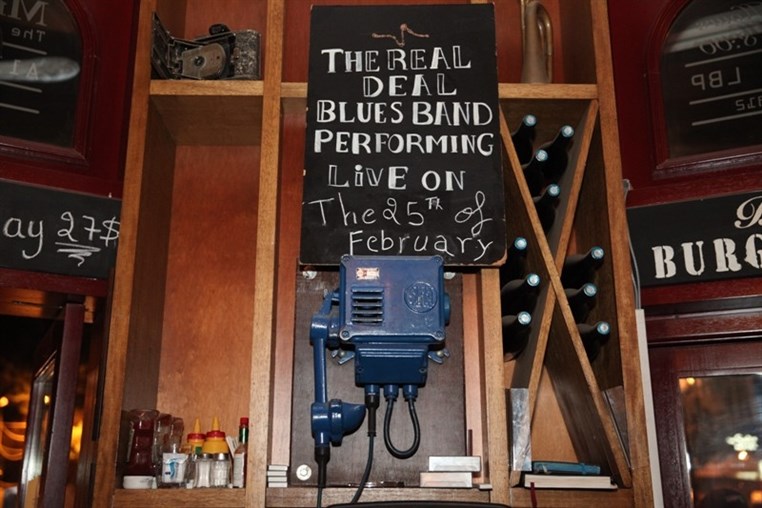 THE REAL
DEAL
BLUES BAND
PERFORMING
LIVE ON
The 25th of
February
ay 27$
BURG
LBP
The